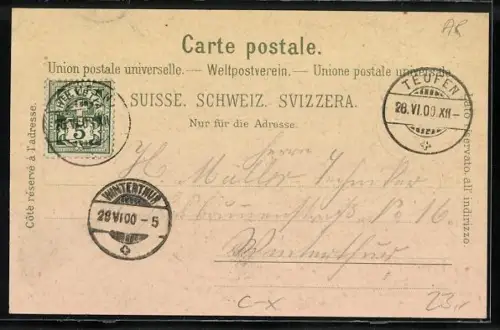 AR
Carte postale.
Union postale universelle. — Weltpostverein. — Unione postale universale
SUISSE. SCHWEIZ. SVIZZERA.
Nur für die Adresse.
Côté réservé à l'adresse.
Lato riservato all' indirizzo.
5
TEUFEN
28.VI.00.XII-
WINTERTHUR
29.VI.00-5
Herrn
H. Müller, Techniker
No 16
Winterthur
C-X
23,-